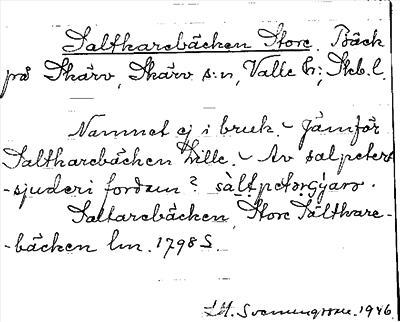 Saltkarebäcken Store. Bäck
på Skärv, Skärv s:n, Valle h:, Skb.l.
Namnet ej i bruk. – Jämför
Saltkarebäcken Lille. – Av salpeter-
-sjuderi fordum? sàltpetərgýarə.
Saltarebäcken, Store Saltkare-
-bäcken lm. 1798 S.
1946.